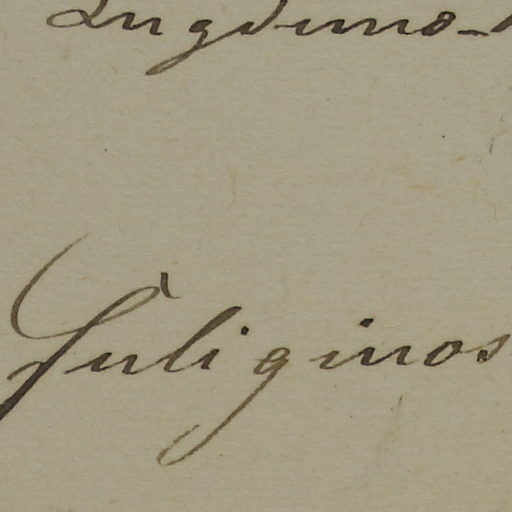 Lugduno-
Fuliginos